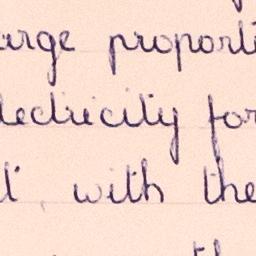 arge proporti
lectricity for
t with the
th